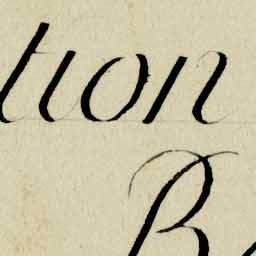 tion
B